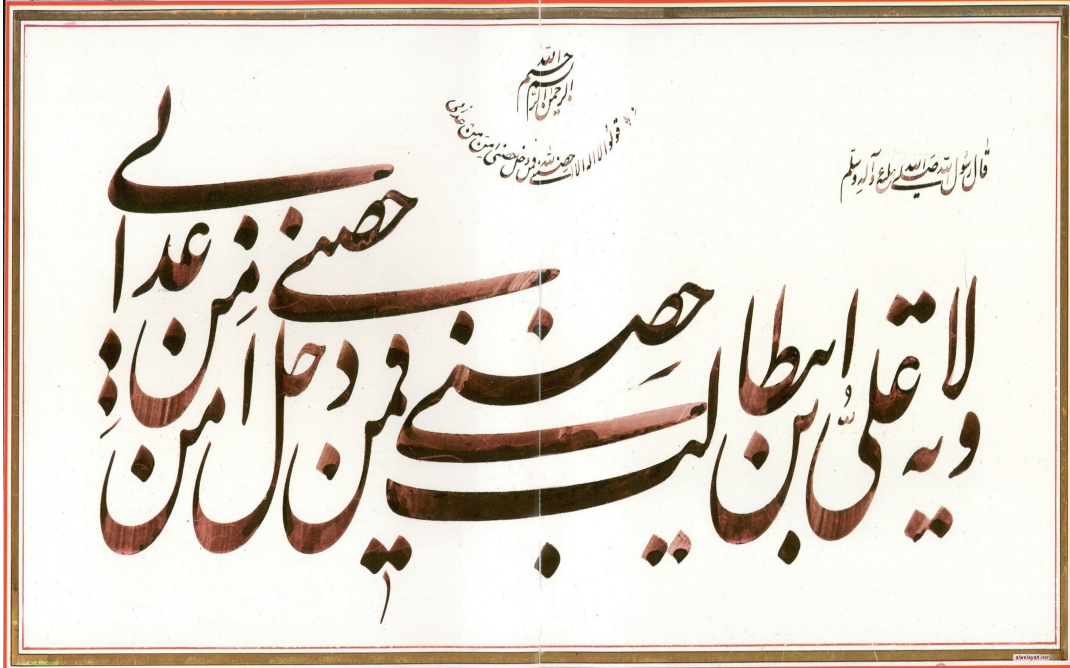 بسم الله الرحمن الرحیم
قولوا لا اله الا الله حصنی فمن دخل حصنی امن من عذابی
قال رسول الله صلی الله علیه و آله وسلم
ولایة علی بن ابیطالب حصنی فمن دخل حصنی امن من عذابی
alwelayah.net